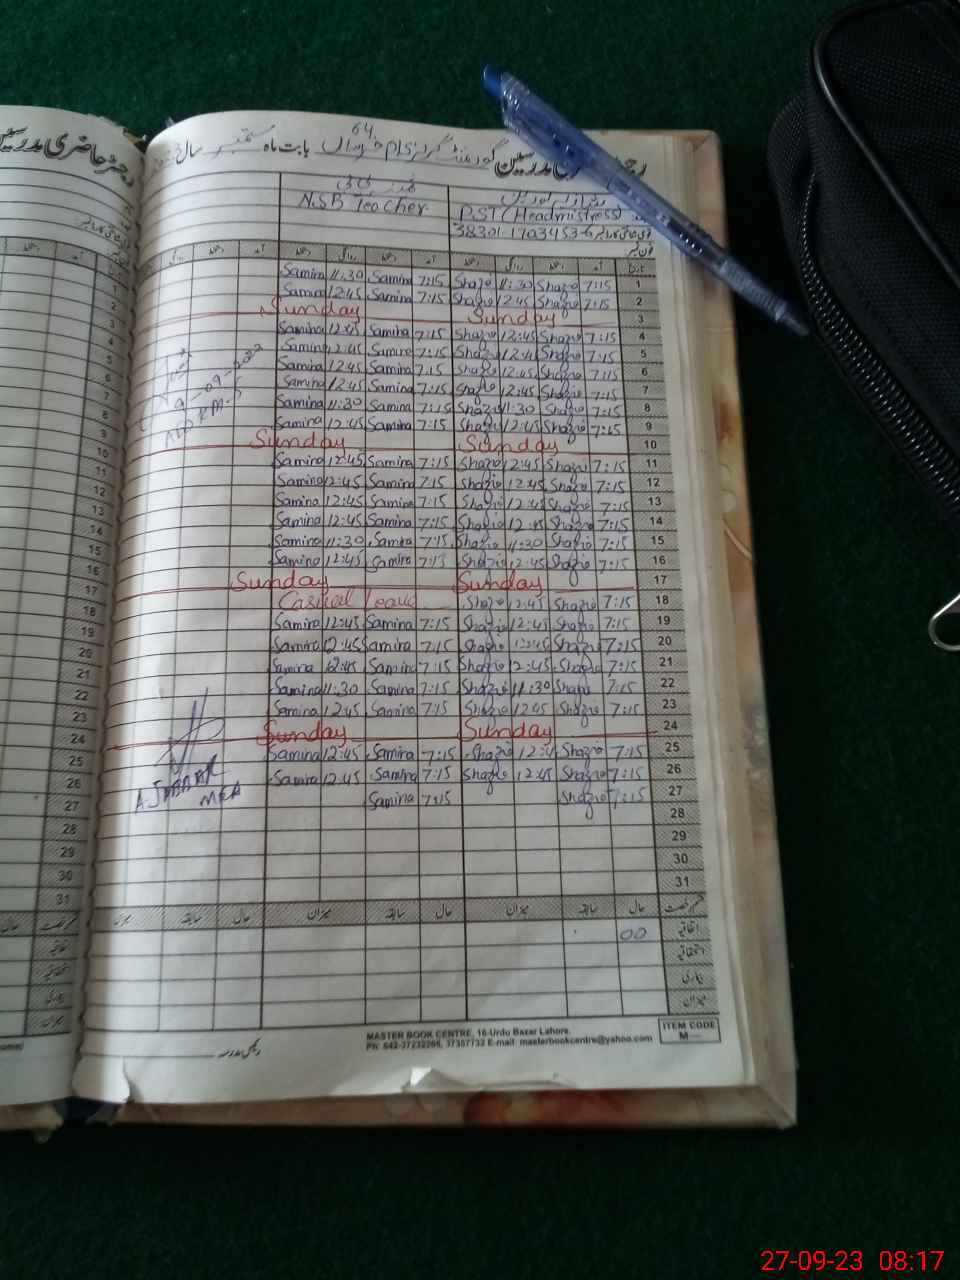 رجسٹر حاضری مدرسین گورنمنٹ گرلز بابت ماہ ستمبر سال
64
N.S.B Teacher. PST (Headmistress)
38301-1703453-6
Samina 11:30 Samina 7:15 Shazia 11:30 Shazia 7:15 1
Samina 12:45 Samina 7:15 Shazia 12:45 Shazia 7:15 2
Sunday Sunday 3
Samina 12:45 Samina 7:15 Shazia 12:45 Shazia 7:15 4
Samina 12:45 Samina 7:15 Shazia 12:45 Shazia 7:15 5
Samina 12:45 Samina 7:15 Shazia 12:45 Shazia 7:15 6
Samina 12:45 Samina 7:15 Shazia 12:45 Shazia 7:15 7
Samina 11:30 Samina 7:15 Shazia 11:30 Shazia 7:15 8
Samina 12:45 Samina 7:15 Shazia 12:45 Shazia 7:15 9
Sunday Sunday 10
Samina 12:45 Samina 7:15 Shazia 12:45 Shazia 7:15 11
Samina 12:45 Samina 7:15 Shazia 12:45 Shazia 7:15 12
Samina 12:45 Samina 7:15 Shazia 12:45 Shazia 7:15 13
Samina 12:45 Samina 7:15 Shazia 12:45 Shazia 7:15 14
Samina 11:30 Samina 7:15 Shazia 11:30 Shazia 7:15 15
Samina 12:45 Samina 7:15 Shazia 12:45 Shazia 7:15 16
Sunday Sunday 17
Casual Leave Shazia 12:45 Shazia 7:15 18
Samina 12:45 Samina 7:15 Shazia 12:45 Shazia 7:15 19
Samina 12:45 Samina 7:15 Shazia 12:45 Shazia 7:15 20
Samina 12:45 Samina 7:15 Shazia 12:45 Shazia 7:15 21
Samina 11:30 Samina 7:15 Shazia 11:30 Shazia 7:15 22
Samina 12:45 Samina 7:15 Shazia 12:45 Shazia 7:15 23
Sunday Sunday 24
Samina 12:45 Samina 7:15 Shazia 12:4 Shazia 7:15 25
Samina 12:45 Samina 7:15 Shazia 12:45 Shazia 7:15 26
Samina 7:15 Shazia 7:15 27
28
29
30
31
میزان سابقہ حال میزان سابقہ حال میزان سابقہ حال قسم رخصت
00 اتفاقیہ
استحقاقیہ
بیماری
میزان
MEA
رئیس مدرسہ
MASTER BOOK CENTRE, 16-Urdu Bazar Lahore.
Ph: 042-37232265, 37357732 E-mail: masterbookcentre@yahoo.com
ITEM CODE
M—
27-09-23 08:17